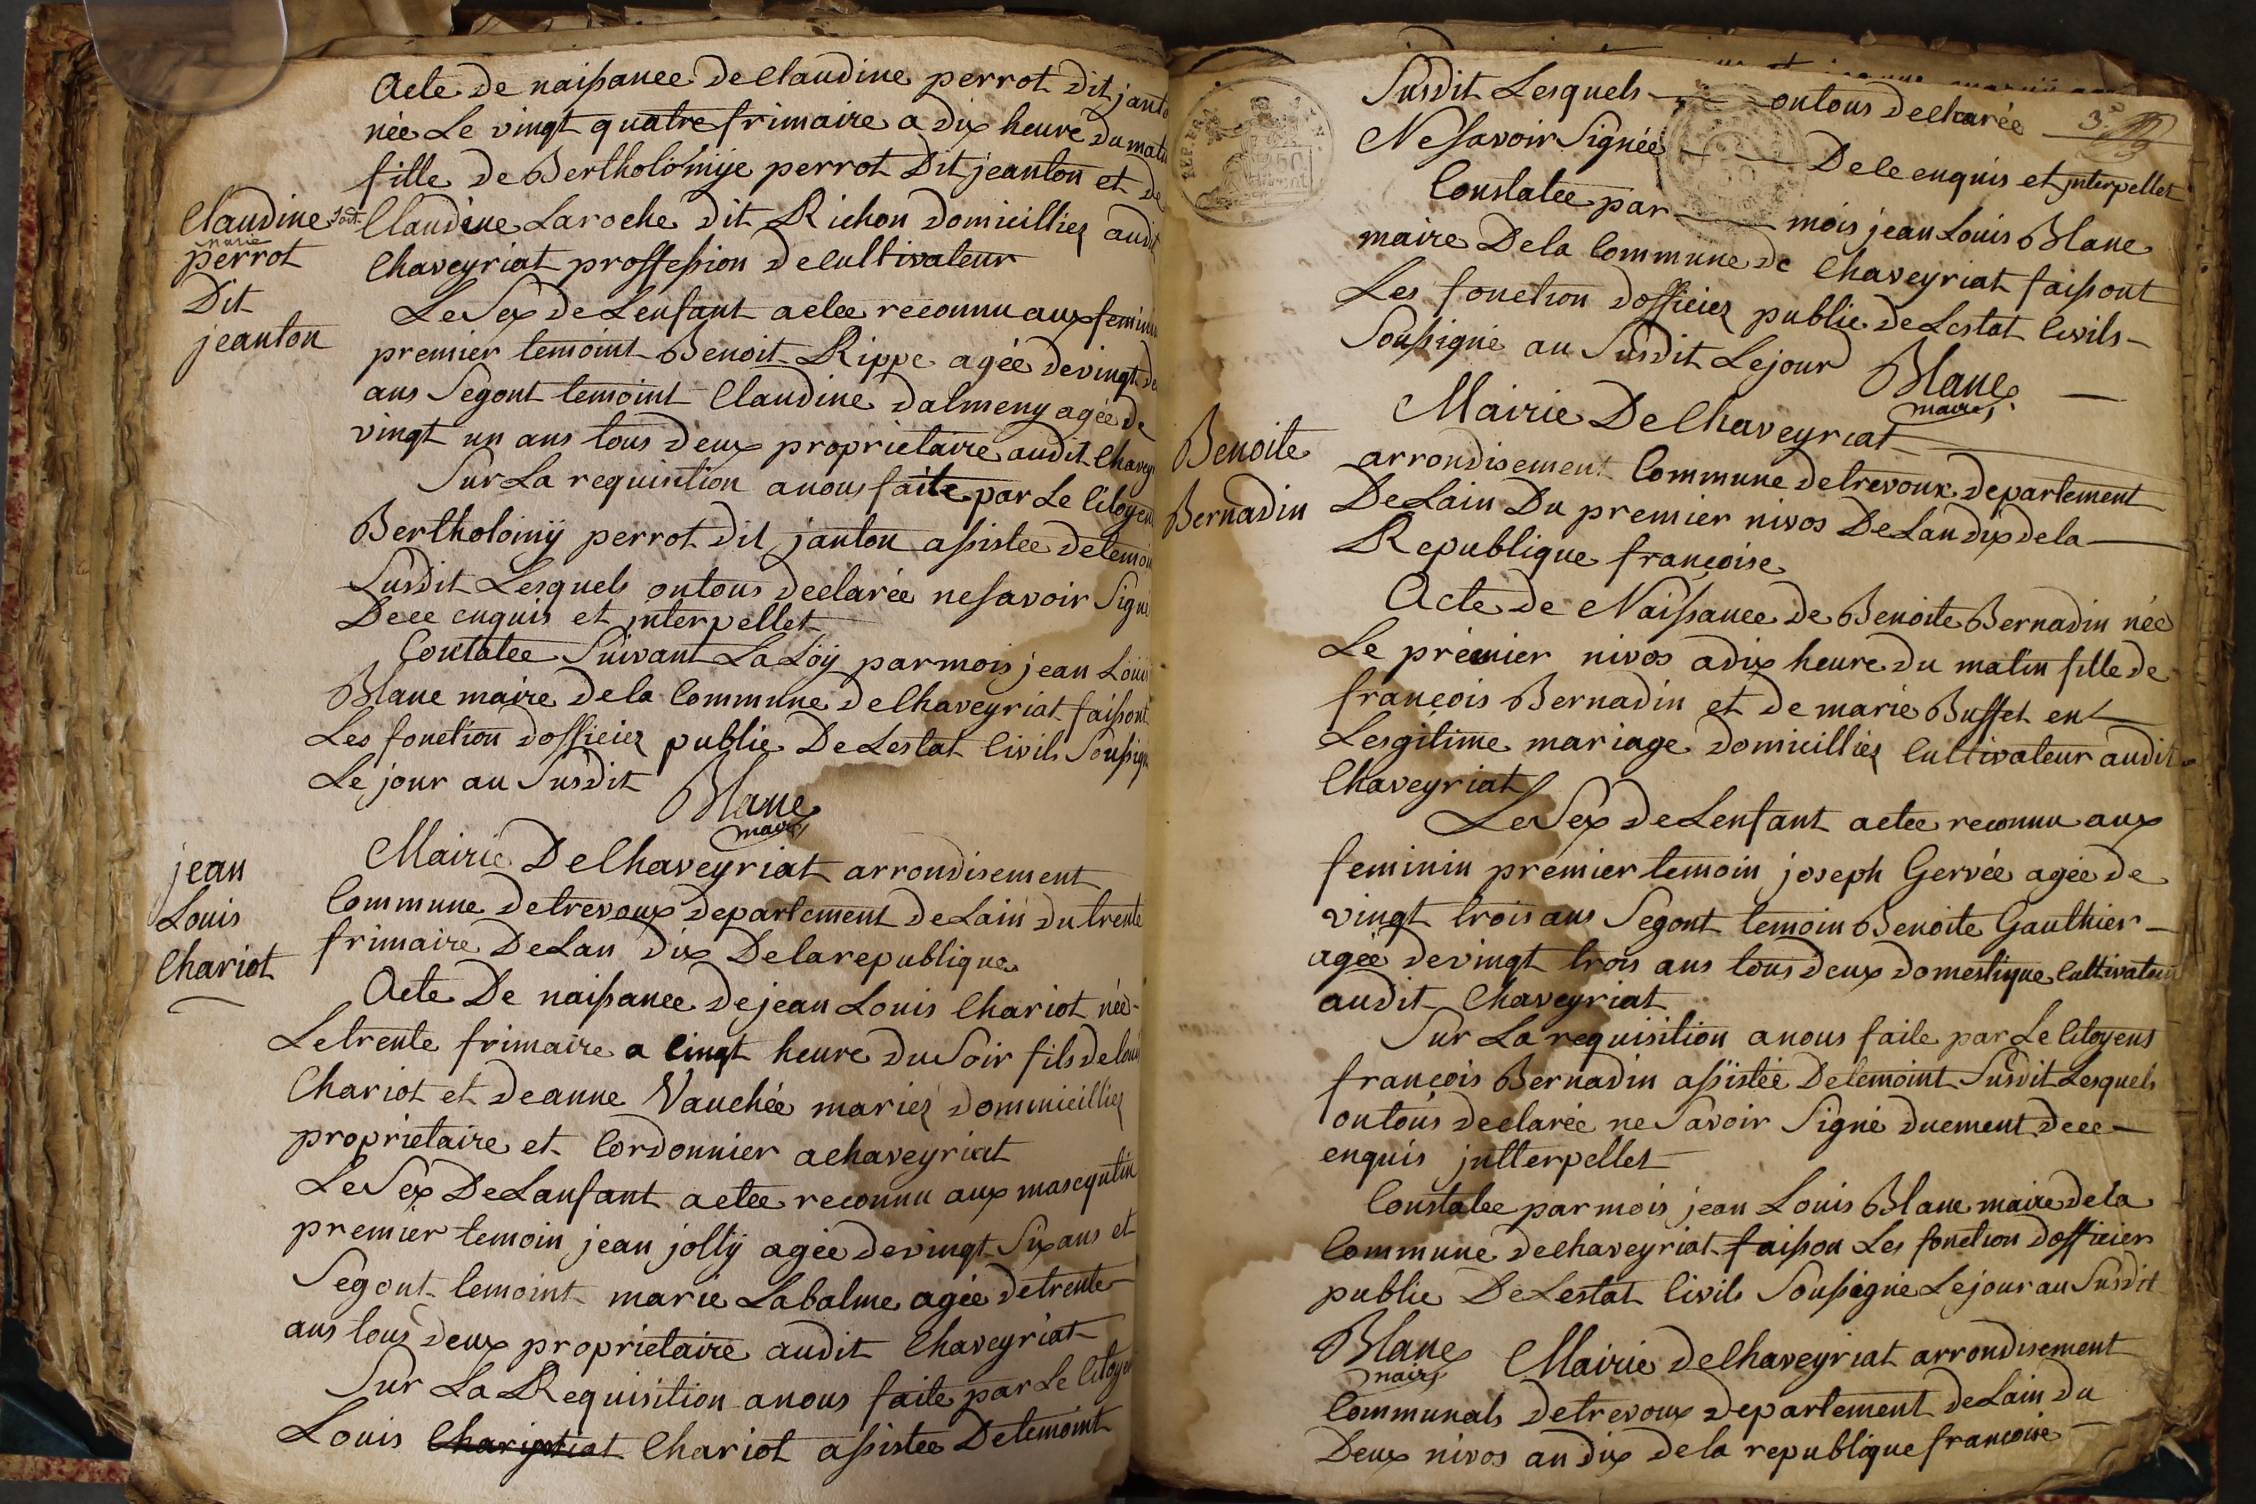 Acte De naissance De Claudine perrot dit janto
née Le vingt quatre frimaire a dix heure du mati
fille de Bertholomye perrot Dit jeanton et de
Claudine Laroche dit Richon domicilliez audit
Chaveyriat proffession de cultivateur
Claudine
marie
perrot
Dit
jeanton
Le Sex de Lenfant a etee reconnu aux feminin
premier temoint Benoit Rippe agée de vingt de
ans Segont temoint Claudine dalmeny agée de
vingt un ans tous deux proprietaire audit Chavey
Sur La requisition a nous faite par Le Citoyen
Bertholomy perrot dit janton assistee de temoin
Susdit Lesquels on tous declarée ne savoir Signé
De ce enquis et interpellet
Contatee Suivant La Loy par mois jean Louis
Blanc maire de la Commune de Chaveyriat faisont
Les fonction dofficiez public De Lestat Civils Soussign
Le jour au Susdit Blanc
maire
jean
Louis
Chariot
Mairie De Chaveyriat arrondisement
Commune de trevoux departement de Lain du trente
frimaire De Lan dix De la republique
Acte De naissance de jean Louis Chariot née
Le trente frimaire a Cinqt heure du Soir fils de Louis
Chariot et de anne Vauchée mariez dominicilliez
proprietaire et Cordonnier a chaveyriat
Le Sex De Lanfant a etee reconnu aux mascqulin
premier temoin jean jolly agée de vingt Six ans et
Segont temoint marie Labalme agée de trente
ans tous deux proprietaire audit Chaveyriat
Sur La Requisition a nous faite par Le Citoyen
Louis Chariot assistee De temoint
Susdit Lesquels on tous decharée
Ne savoir Signée De ce enquis et interpellet
Constatee par mois jean Louis Blanc
maire De la Commune de Chaveyriat faisont
Les fonction dofficiez public de Lestat Civils
Soussigné au Susdit Le jour Blanc
maire
Benoite
Bernadin
Mairie De Chaveyriat
arrondisement Commune de trevoux departement
De Lain Du premier nivos De Lan dix de la
Republique françoise
Acte de Naissance de Benoite Bernadin née
Le premier nivos a dix heure du matin fille de
françois Bernadin et de marie Buffet ent
Lesgitime mariage domicilliez Cultivateur audit
Chaveyriat
Le Sex de Lenfant a etee reconnu aux
feminin premier temoin joseph Gervée agée de
vingt trois ans Segont temoin Benoite Gaulthier
agée de vingt trois ans tous deux domestique Cultivateur
audit Chaveyriat
Sur La requisition a nous faite par Le Citoyens
françois Bernadin assistée De temoint Susdit Lesquels
on tous declarée ne Savoir Signé duement de ce
enquis jntterpellet
Constatee par mois jean Louis Blanc maire de la
Commune de chaveyriat faisson Les fonction dofficier
public De Lestat Civils Soussigné Le jour au Susdit
Blanc
maire
Mairie de Chaveyriat arrondisement
Communals de trevoux departement de Lain du
Deux nivos an dix de la republique françoise